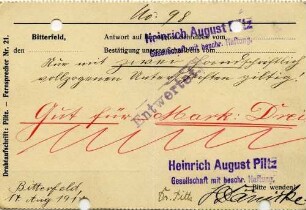 No. 98
Bitterfeld, Antwort auf
Heinrich August Piltz
Gesellschaft mit beschr. Haftung.
den Bestätigung unseres
Nur mit zwei handschriftlich
vollzogenen Unterschriften giltig.
Entwertet
Gut für Mark: Drei
Drahtaufschrift: Piltz. - Fernsprecher Nr. 21.
Heinrich August Piltz
Gesellschaft mit beschr. Haftung.
Bitte wenden!
Bitterfeld,
14 Aug 1914
Dr. Piltz